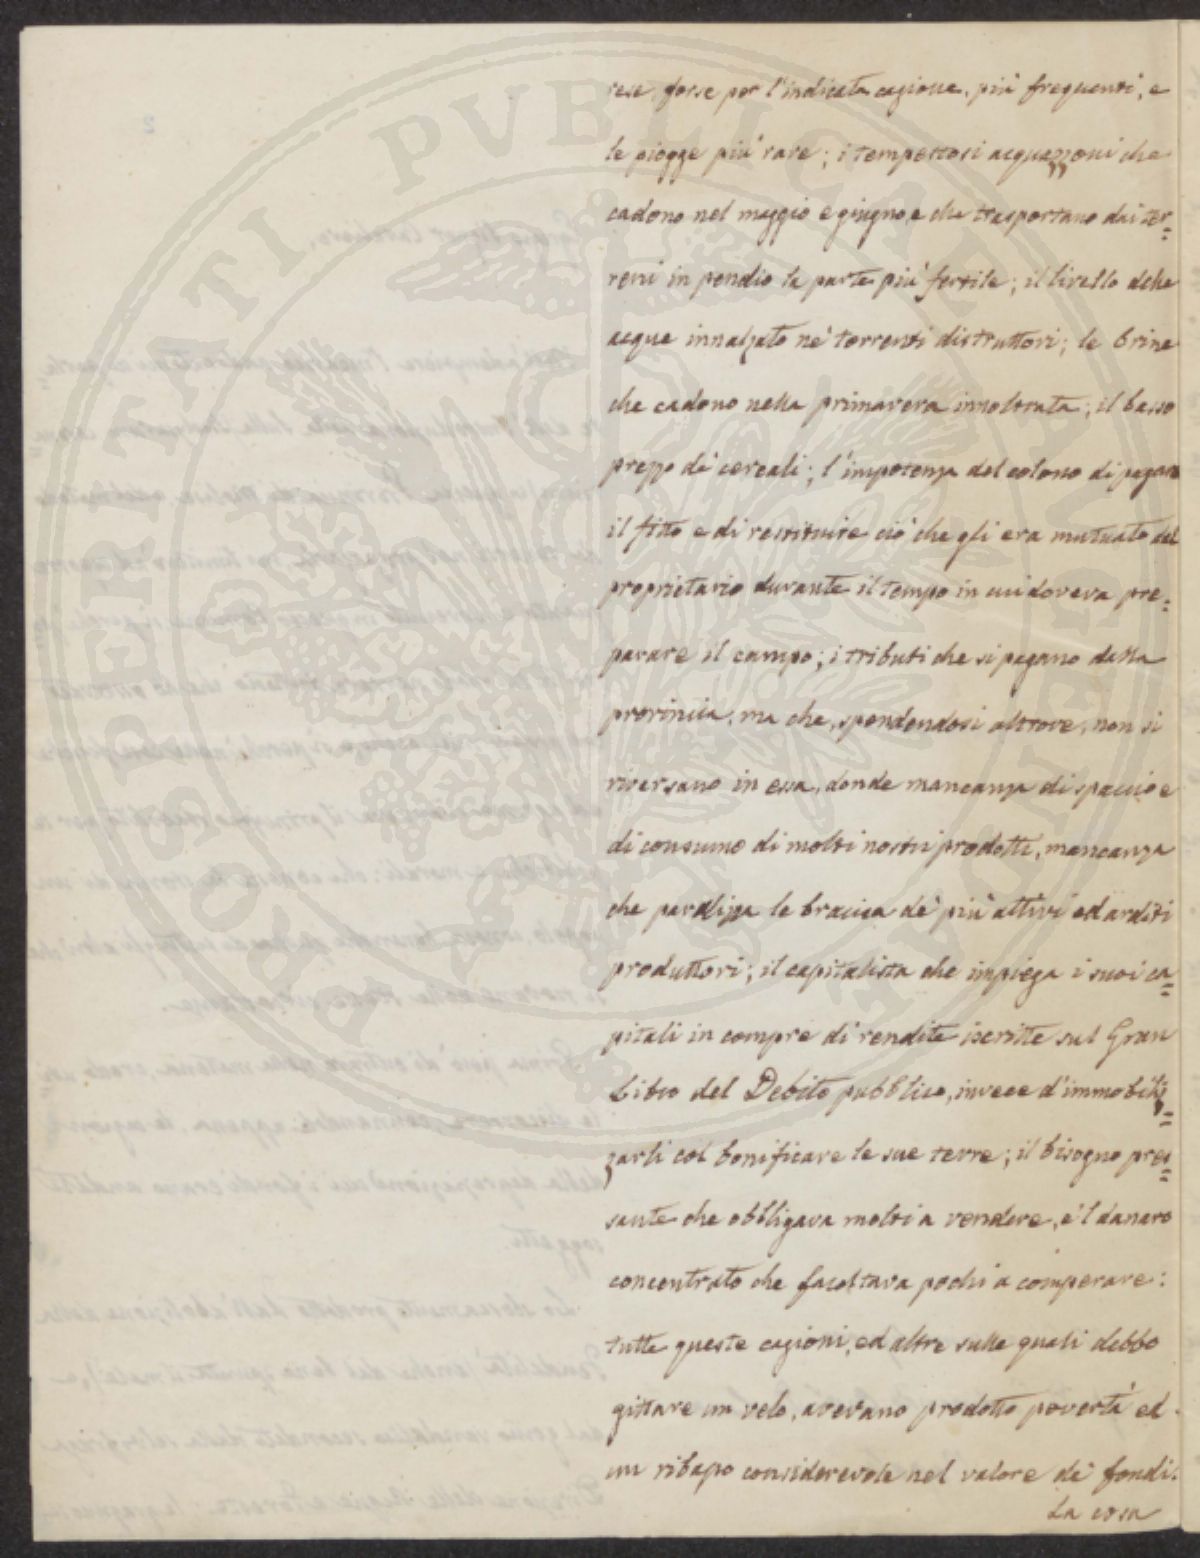 rese, forse per l'indicata cagione, più frequenti, e
le piogge più rare; i tempestosi acquazzoni che
cadono nel maggio e giugno e che trasportano dai ter=
reni in pendio la parte più fertile; il livello delle
acque innalzato ne' torrenti distruttori; le brine
che cadono nella primavera innoltrata; il basso
prezzo de' cereali; l'impotenza del colono di pagare
il fitto e di restituire ciò che gli era mutuato dal
proprietario durante il tempo in cui doveva pre=
parare il campo; i tributi che si pagano dalla
provincia, ma che, spendendosi altrove, non si
riversano in essa, donde mancanza di spaccio e
di consumo di molti nostri prodotti, mancanza
che paralizza le braccia de' più attivi ed arditi
produttori; il capitalista che impiega i suoi ca=
pitali in compre di rendite iscritte sul Gran
Libro del Debito pubblico, invece d'immobiliz=
zarli col bonificare le sue terre; il bisogno pres=
sante che obbligava molti a vendere, e 'l danaro
concentrato che facoltava pochi a comperare:
tutte queste cagioni, ed altre sulle quali debbo
gittare un velo, avevano prodotto povertà ed
un ribasso considerevole nel valore de' fondi.
La cosa
PROSPERITATI PUBLICAE AUGENDAE